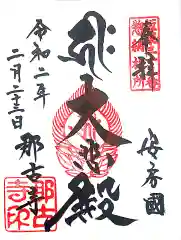 奉拝
安房國
大悲殿
令和二年
二月二十三日
那古寺